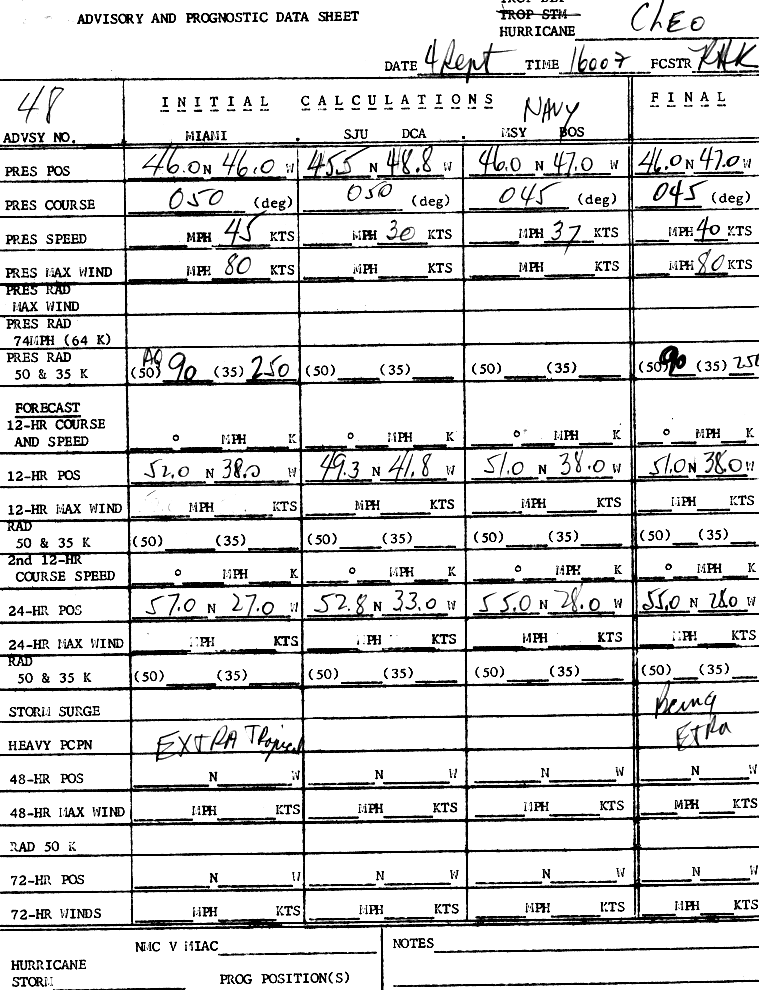 ADVISORY AND PROGNOSTIC DATA SHEET
TROP STM
HURRICANE CLEO
DATE 4 Sept TIME 1600Z FCSTR RHK
48 INITIAL CALCULATIONS NAVY FINAL
ADVSY NO. MIAMI . SJU DCA . MSY BOS
PRES POS 46.0 N 46.0 W 45.5 N 48.8 W 46.0 N 47.0 W 46.0 N 47.0 W
PRES COURSE 050 (deg) 050 (deg) 045 (deg) 045 (deg)
PRES SPEED MPH 45 KTS MPH 30 KTS MPH 37 KTS MPH 40 KTS
PRES MAX WIND MPH 80 KTS MPH KTS MPH KTS MPH 80 KTS
PRES RAD
MAX WIND
PRES RAD
74MPH (64 K)
PRES RAD
50 & 35 K (50) 90 (35) 250 (50) (35) (50) (35) (50) 90 (35) 250
FORECAST
12-HR COURSE
AND SPEED ° MPH K ° MPH K ° MPH K ° MPH K
12-HR POS 52.0 N 38.0 W 49.3 N 41.8 W 51.0 N 38.0 W 51.0 N 38.0 W
12-HR MAX WIND MPH KTS MPH KTS MPH KTS MPH KTS
RAD
50 & 35 K (50) (35) (50) (35) (50) (35) (50) (35)
2nd 12-HR
COURSE SPEED ° MPH K ° MPH K ° MPH K ° MPH K
24-HR POS 57.0 N 27.0 W 52.8 N 33.0 W 55.0 N 28.0 W 55.0 N 28.0 W
24-HR MAX WIND MPH KTS MPH KTS MPH KTS MPH KTS
RAD
50 & 35 K (50) (35) (50) (35) (50) (35) (50) (35)
STORM SURGE Being
HEAVY PCPN EXTRA Tropical Extra
48-HR POS N W N W N W N W
48-HR MAX WIND MPH KTS MPH KTS MPH KTS MPH KTS
RAD 50 K
72-HR POS N W N W N W N W
72-HR WINDS MPH KTS MPH KTS MPH KTS MPH KTS
NMC V MIAC NOTES
HURRICANE
STORM PROG POSITION(S)